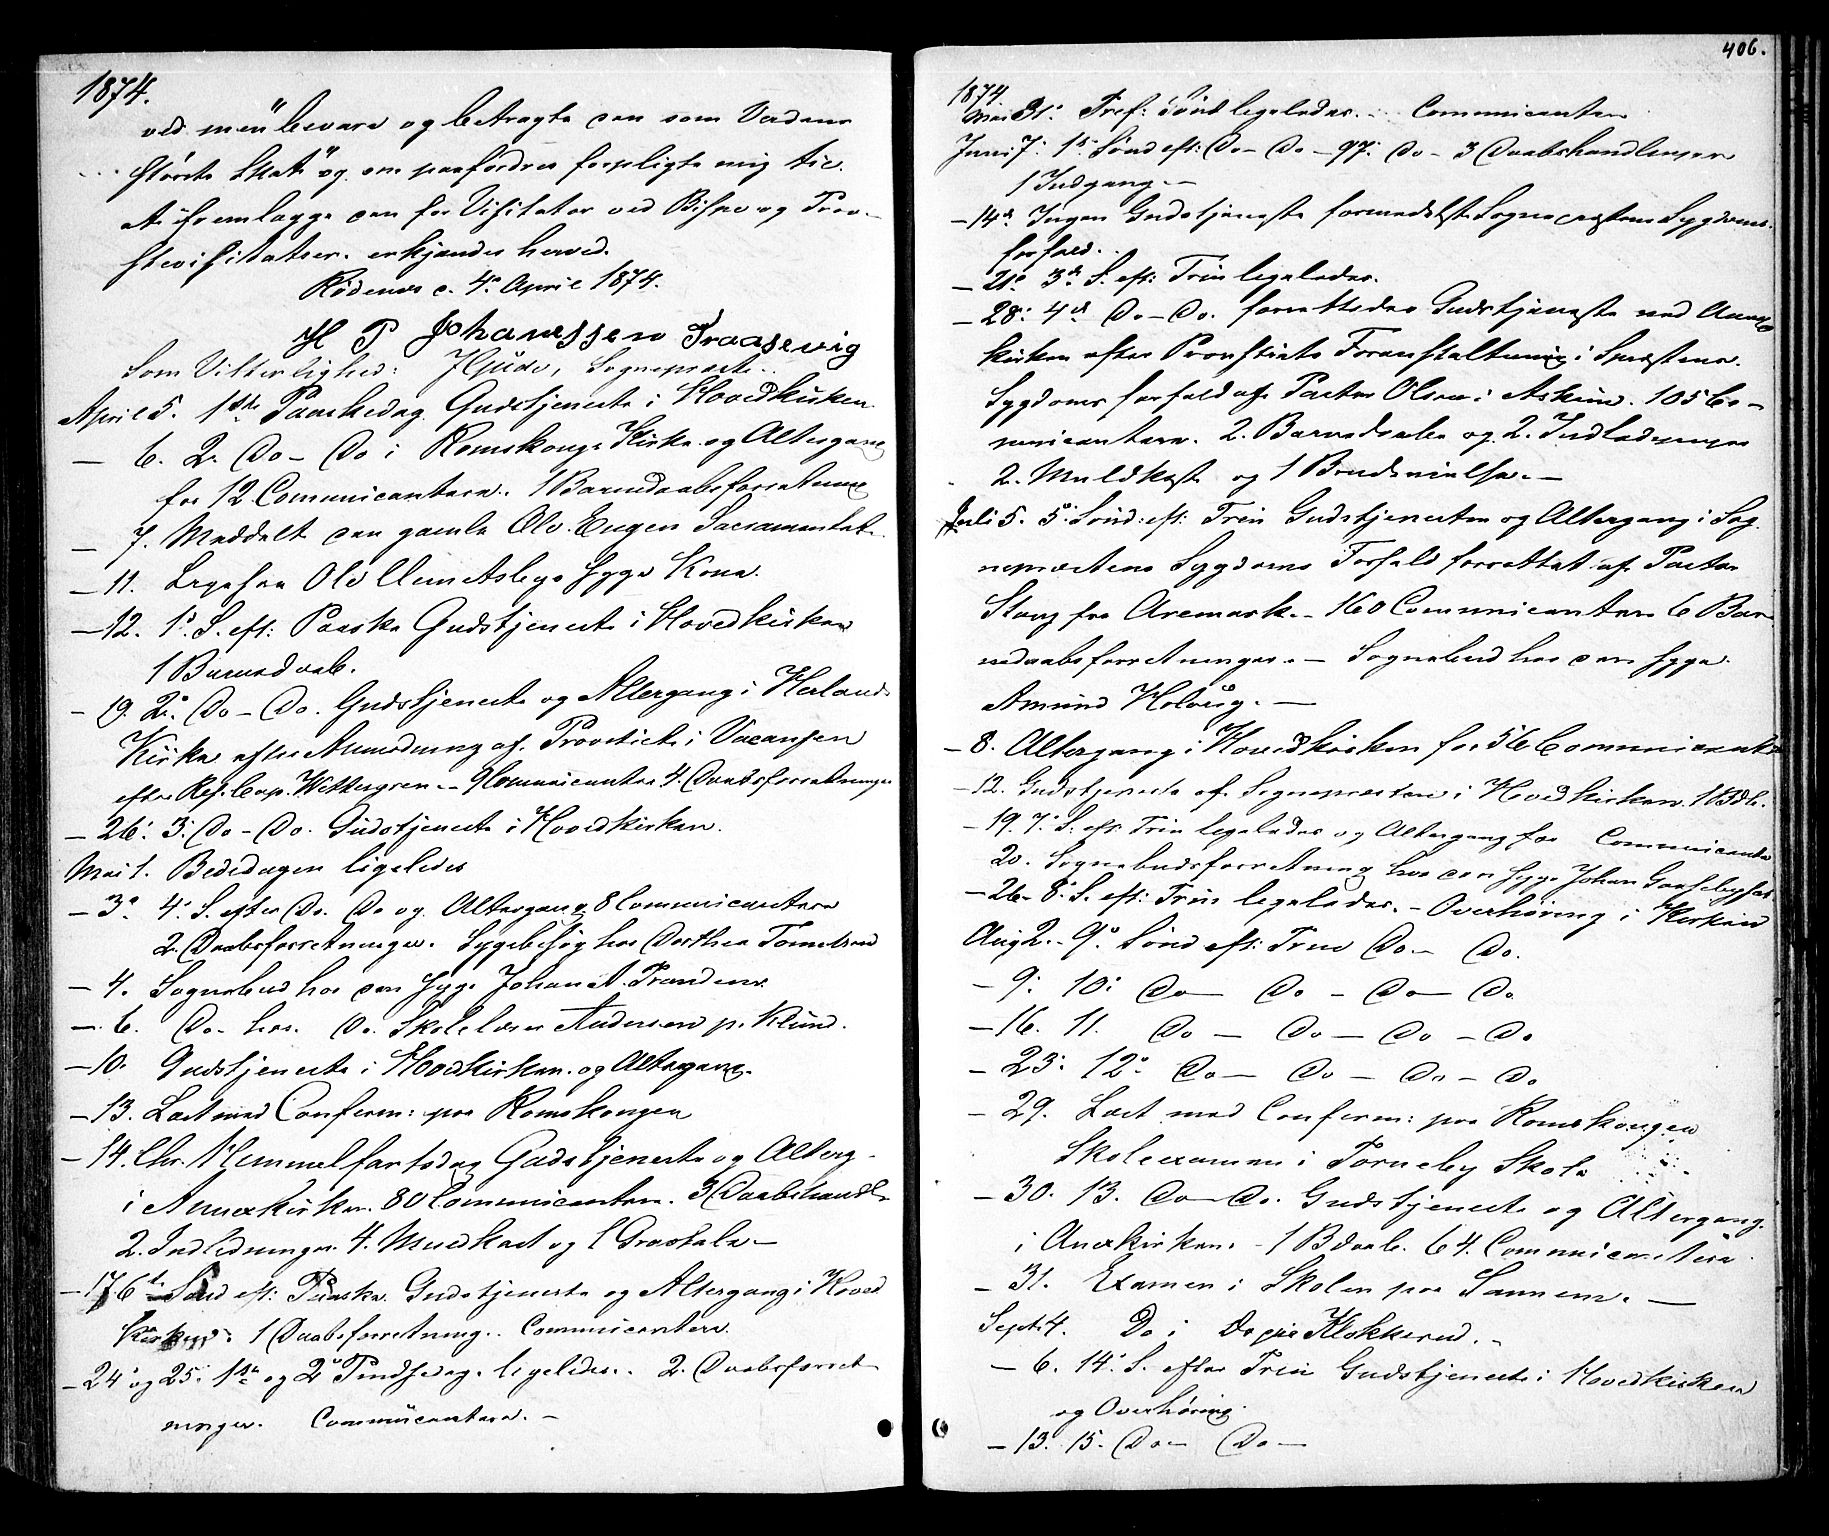 1874.
ved mün bevare og betragte den som Verdens
største Skat" og om paafordres forpligte mig til
at fremlægge den for Visitator ved Bispe og Prov-
stevisitatser. erkjendes herved.
Rødenes d. 4. April 1874.
H P Johanessen Traasevig
Som Vitterlighed: Hjude, Sognepræst.
April 5. 1ste Paaskedag Gudstjeneste i Hovedkirken
— 6. 2. Do – Do i Romskougs Kirke og Altergang
for 12 Comunicantere. 1 Barnedaabsforretning
— 7. Meddelt den gamle Olv. Engen Sacramentet.
— 11. Ligesaa Ole syge Kone.
— 12. 1. S. eft: Paaske Gudstjeneste i Hovedkirken
1 Barnedaab.
— 19. 2. Do – Do. Gudstjeneste og Altergang i Herlands
Kirke efter Anmodning af Provstiet i Vacansen
efter Res. Cap. Wettergren. – 9 Communicanter 4. Daabsforretninger
— 26. 3. Do – Do. Gudstjeneste i Hovedkirken.
Mai 1. Bededagen ligeledes
— 3. 4. S. efter Do. Do og Altergang 8 Communicantere
2. Daabsforretninger. Sygebesøg hos Dorthea
— 4. Sognebud hos den syge Johan A. Trandem.
— 6. Do – hos Do. Skolelærer Andersen p. Klund.
— 10. Gudstjeneste i Hovedkirken og Altergang.
— 13. Læst med Conferm: paa Romskougen
— 14. Chr. Himmelfartsdag Gudstjeneste og Alterg-
i Annexkirken. 80 Communicantere. 3 Daabshandl.
2. Indledninger. 4. Muldkast og 1 Gravtale. —
— 17. 6te Sønd eft: Paaske. Gudstjeneste og Altergang i Hoved
Kirken. 1 Daabsforretning. Communicantere.
— 24 og 25. 1ste og 2 Pindsedag. ligeledes. 2. Daabsforret
ninger. Communicantere. —
406.
1874
Mai 31. Tref: Sønd ligeledes. – Communicantere
Juni 7. 1. Sønd eft: Do – Do – 97. Do – 3 Daabshandlinger
1 Indgang. —
— 14d Ingen Gudstjeneste formedelst Sognepræstens Sygdoms
forfald.
— 21d 3d S. eft: Trin ligeledes.
— 28. 4d Do – Do. forrettedes Gudstjeneste ved Annex
kirken efter Provstiets Foranstaltning i Spræstens
Sygdoms forfald af Pastor Olsen i Askim. 105 Co-
municantere. 2. Barnedaabe og 2. Indledninger
2. Muldkast og 1 Brudevielse. —
Juli 5. 5. Sønd: eft: Trin Gudstjenesten og Altergang i Sog
nepræstens Sygdoms Forfald forrettet af Pastor
Stang fra Aremark. – 160 Communicantere 6 Bar
nedaabsforretninger. — Sognebud hos den syge
Amund Holvig. —
— 8. Altergang i Hovedkirken for 56 Communicante
— 12. Gudstjeneste af Sognepræsten i Hovedkirken. 1 Bdb.
— 19. 7. S. eft Trin ligeledes og Altergang for Communicante
20. Sognebudsforretning hos den syge Johan
— 26. 8. S. eft: Trin ligeledes. – Overhøring i Kirken
Aug 2. – 9. Sønd eft: Trin Do – Do.
— 9. 10. Do – Do – Do – Do
— 16. 11. Do – Do – Do – Do
— 23. 12. Do – Do – Do – Do
— 29. Læst med Conferm: paa Romskougen
Skoleexamen i Torneby Skole
— 30. 13. Do – Do. Gudstjeneste og Altergang.
i Anexkirken. – 1 Bdaab. 64. Communicantere.
— 31. Examen i Skolen paa Sannem. —
Sept. 4. Do i Do paa Klokkerud. –
— 6. 14. S. efter Trin Gudstjeneste i Hovedkirken
og Overhøring.
— 13. 15. Do – Do —